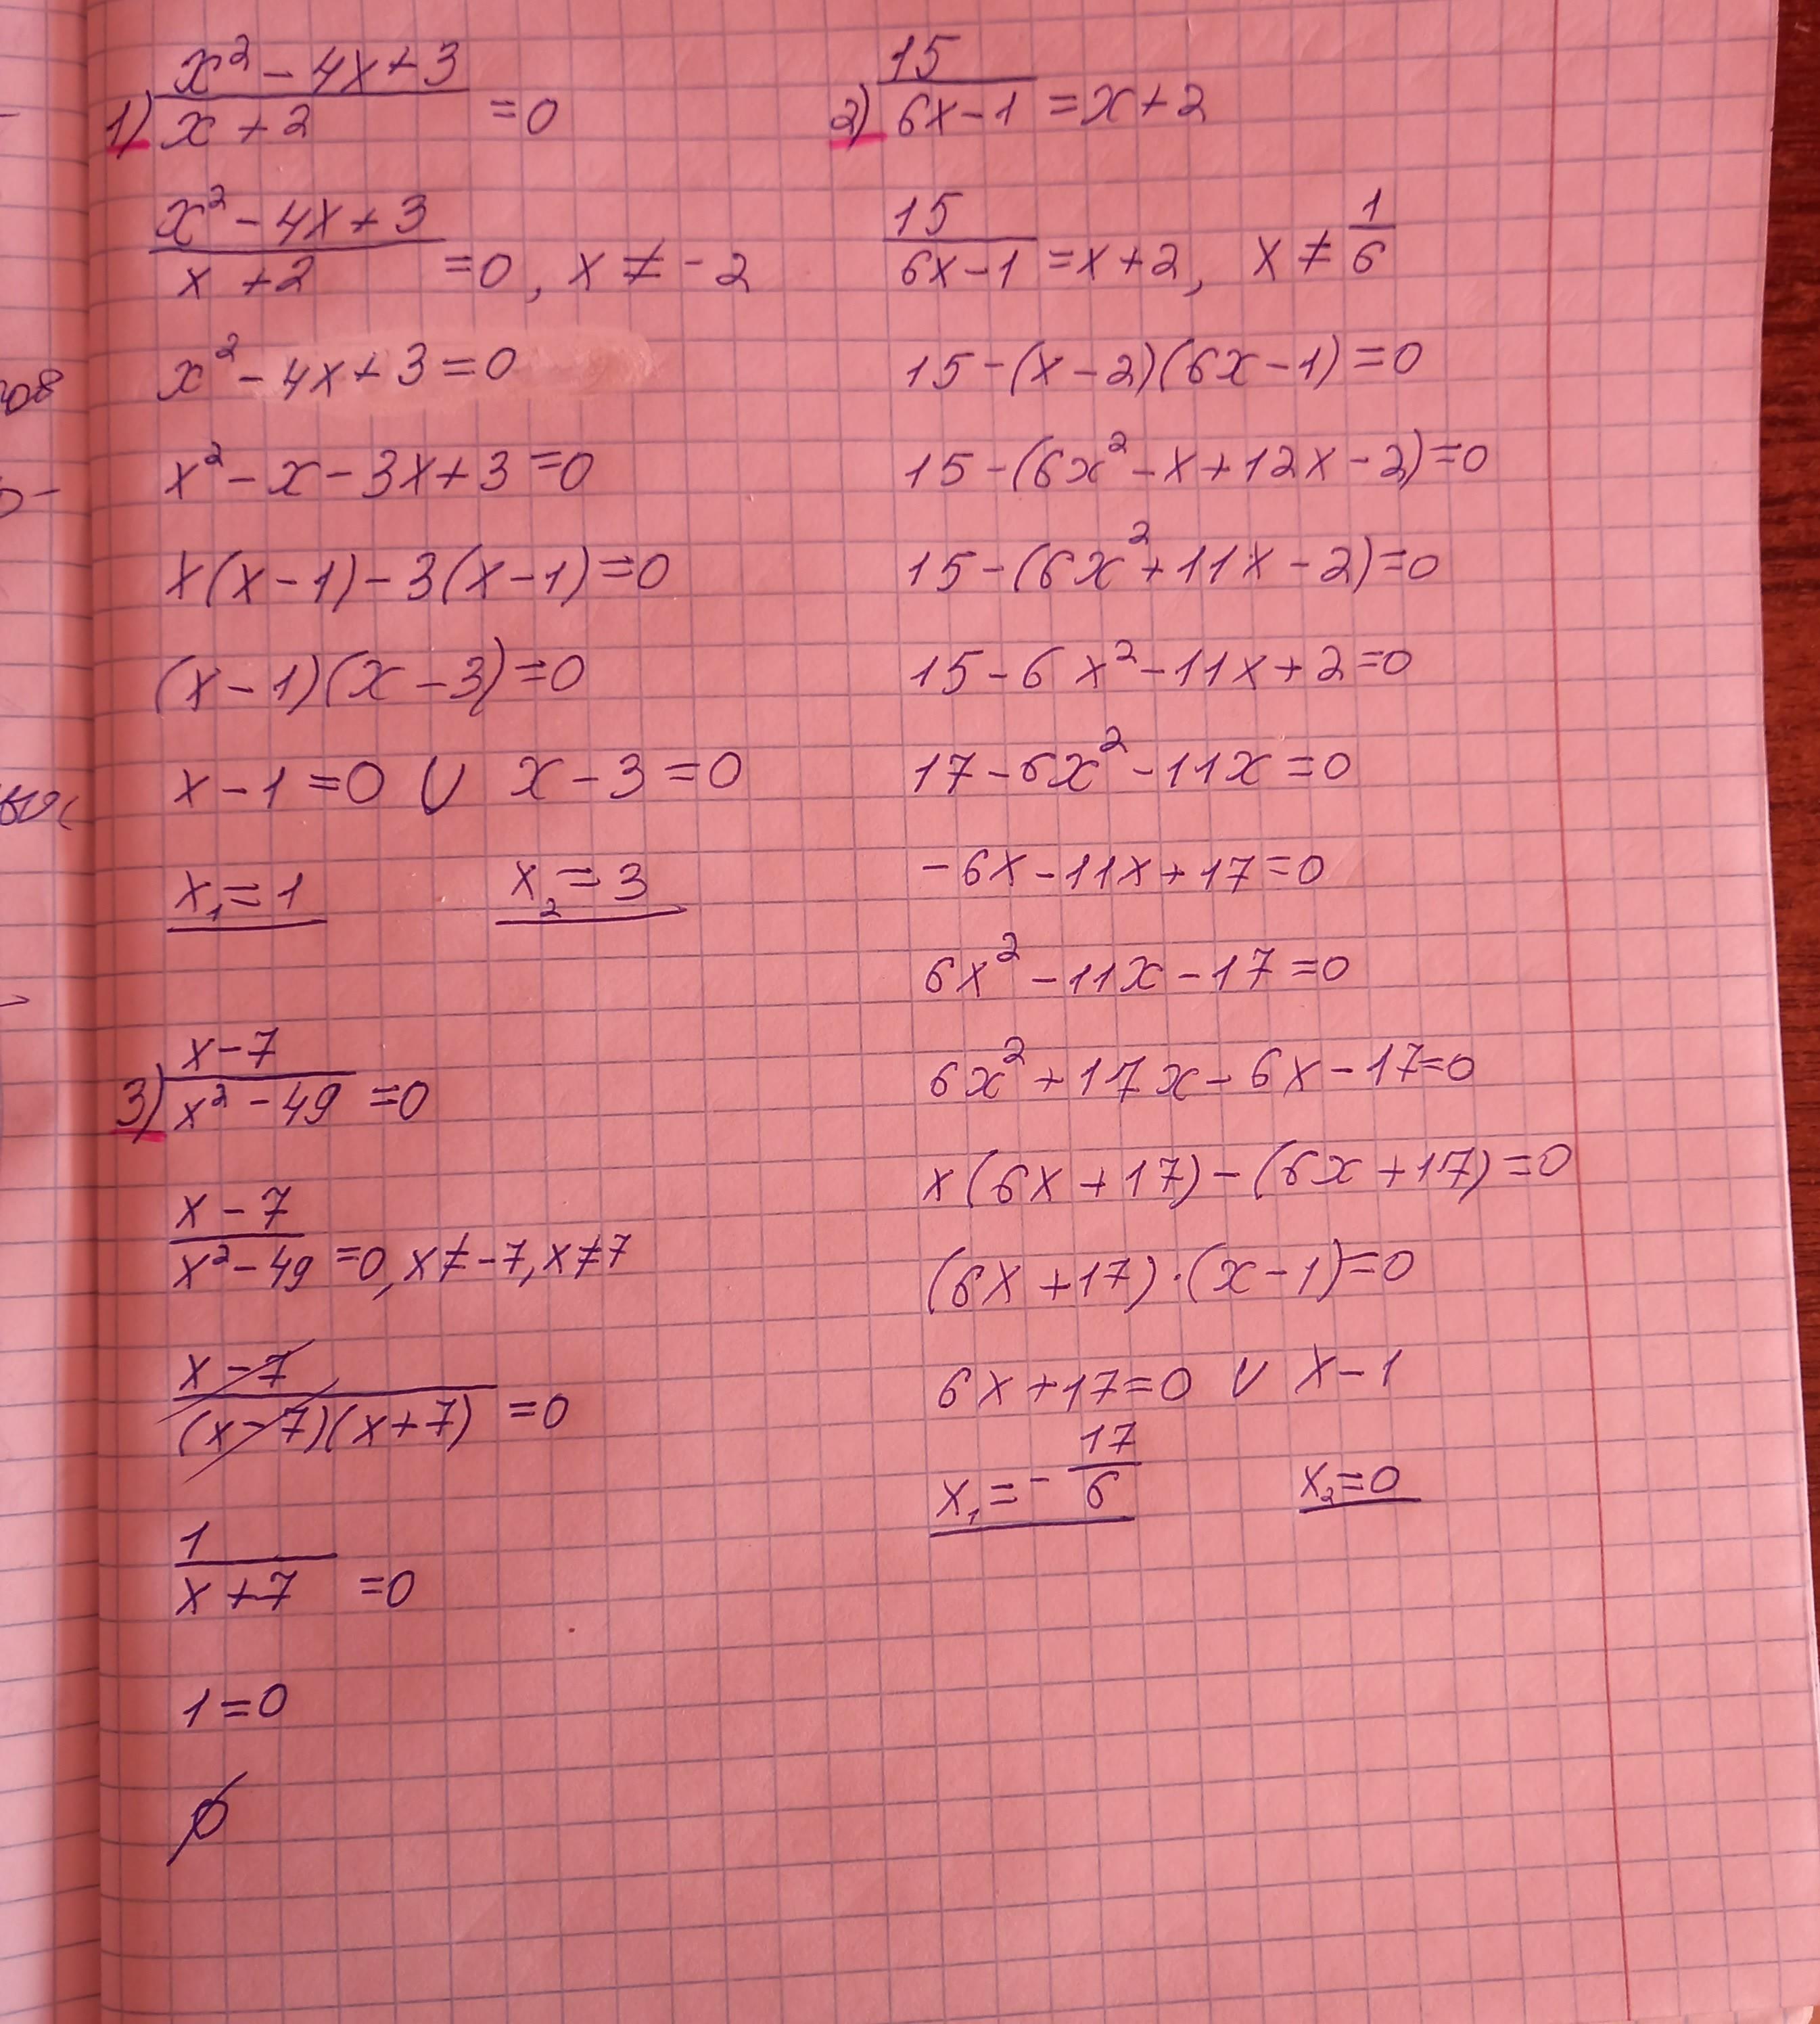 1) (x² - 4x + 3)/(x + 2) = 0
(x² - 4x + 3)/(x + 2) = 0, x ≠ -2
x² - 4x + 3 = 0
x² - x - 3x + 3 = 0
x(x - 1) - 3(x - 1) = 0
(x - 1)(x - 3) = 0
x - 1 = 0 ∪ x - 3 = 0
x₁ = 1 x₂ = 3
3) (x - 7)/(x² - 49) = 0
(x - 7)/(x² - 49) = 0, x ≠ -7, x ≠ 7
(x - 7)/((x - 7)(x + 7)) = 0
1/(x + 7) = 0
1 = 0
∅
2) 15/(6x - 1) = x + 2
15/(6x - 1) = x + 2, x ≠ 1/6
15 - (x - 2)(6x - 1) = 0
15 - (6x² - x + 12x - 2) = 0
15 - (6x² + 11x - 2) = 0
15 - 6x² - 11x + 2 = 0
17 - 6x² - 11x = 0
-6x - 11x + 17 = 0
6x² - 11x - 17 = 0
6x² + 17x - 6x - 17 = 0
x(6x + 17) - (6x + 17) = 0
(6x + 17) · (x - 1) = 0
6x + 17 = 0 ∪ x - 1
x₁ = - 17/6 x₂ = 0